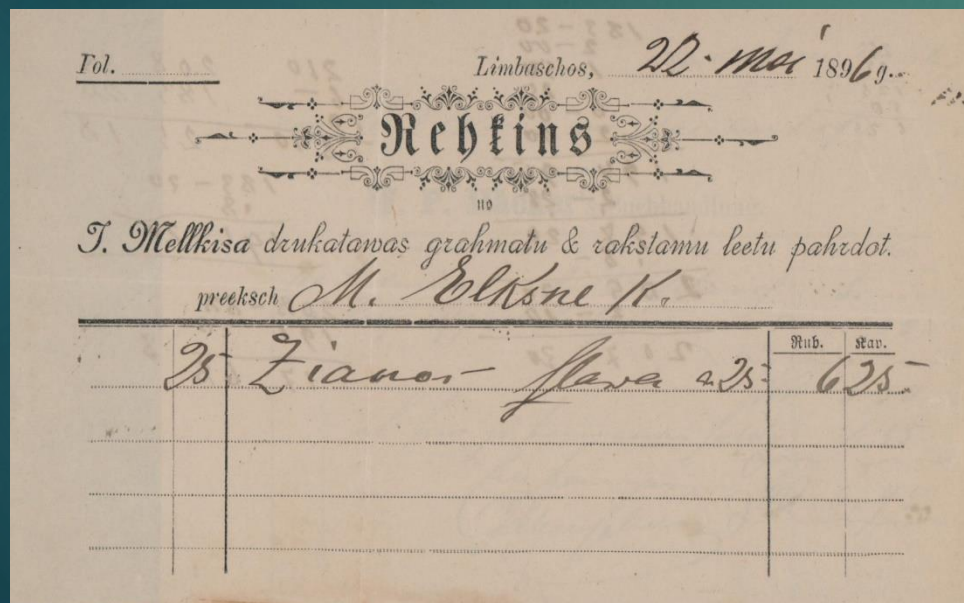 Fol. Limbaschos, 22. mai 1896 g.
Rehkins
no
J. Mellkisa drukatawas grahmatu & rakstamu leetu pahrdot.
preeksch M. Elksne K.
Rub. Kap.
25 a 25 6 25